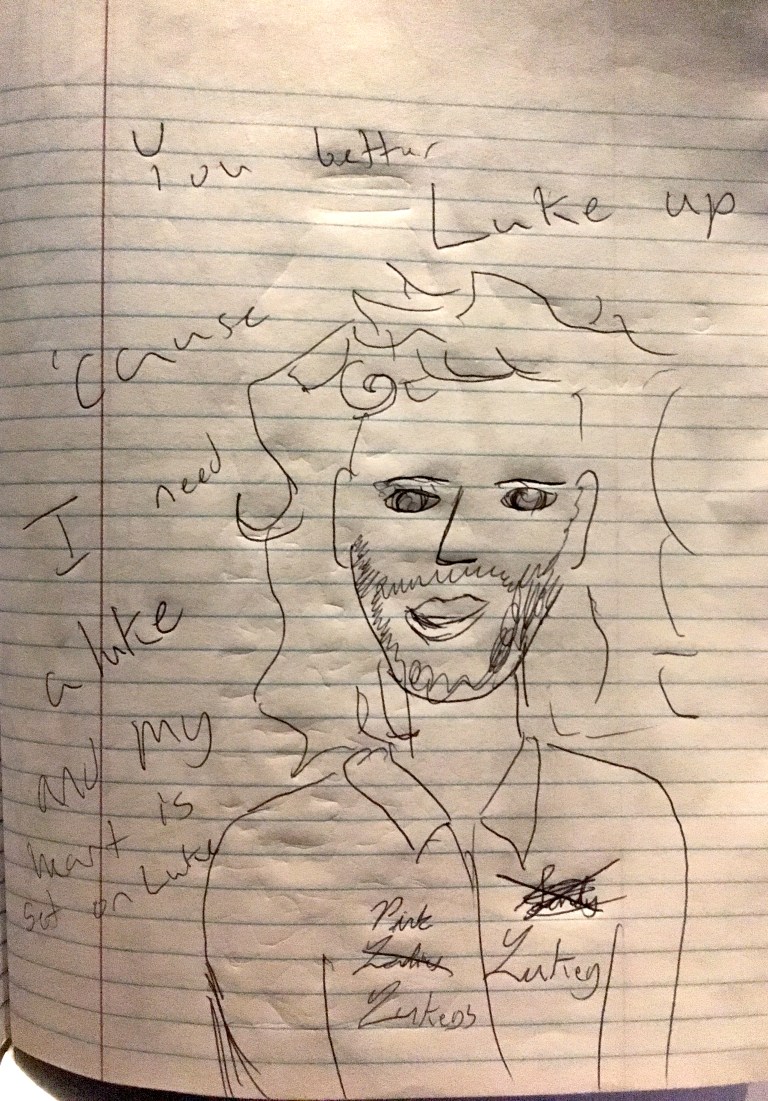 You better
Luke up
'cause
I need
a luke
and my
heart is
set on Luke
Pink
Lukeos
Lukey